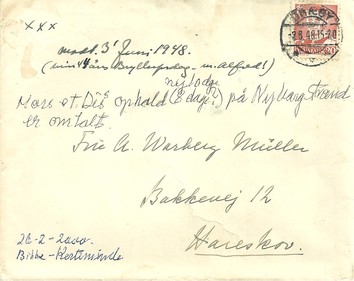 xxx
modt. 3' Juni 1948.
(min 44 års Bryllupsdag - m. Alfred!)
nylodge
Mors et Dis ophold (8 dage?) på Nyborg Strand
er omtalt.
Fru A. Warberg Müller
Bakkevej 12
Hareskov.
26-2-2000.
Bibbe - Kerteminde